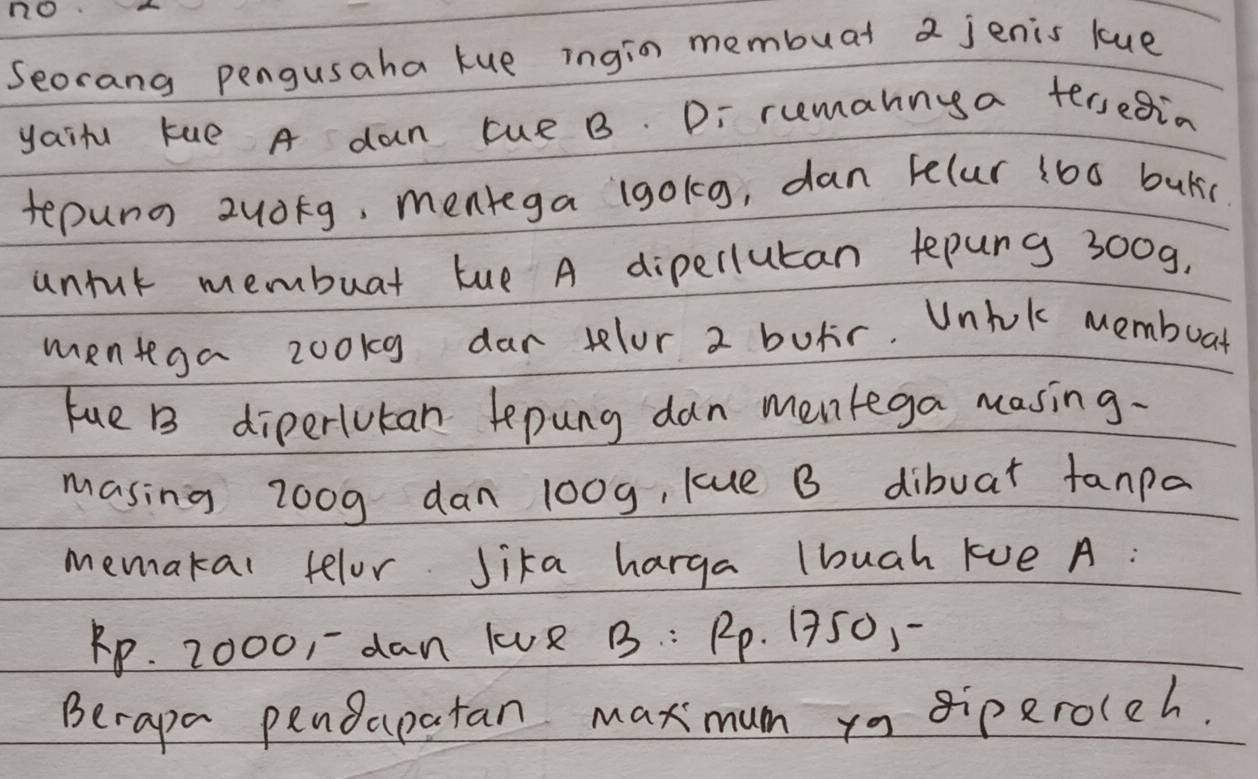 no. 2
Seorang pengusaha kue ingin membuat 2 jenis kue
yaitu kue A dan kue B. Di rumahnya tersedia
tepung 240kg, mentega 190kg, dan telur 160 butir.
untuk membuat kue A diperlukan tepung 300g,
mentega 200kg dan telur 2 butir. Untuk membuat
kue B diperlukan tepung dan mentega masing-
masing 200g dan 100g, kue B dibuat tanpa
memakai telur. Jika harga 1buah kue A :
Rp. 2000,- dan kue B : Rp. 1750,-
Berapa pendapatan maximum yg diperoleh.